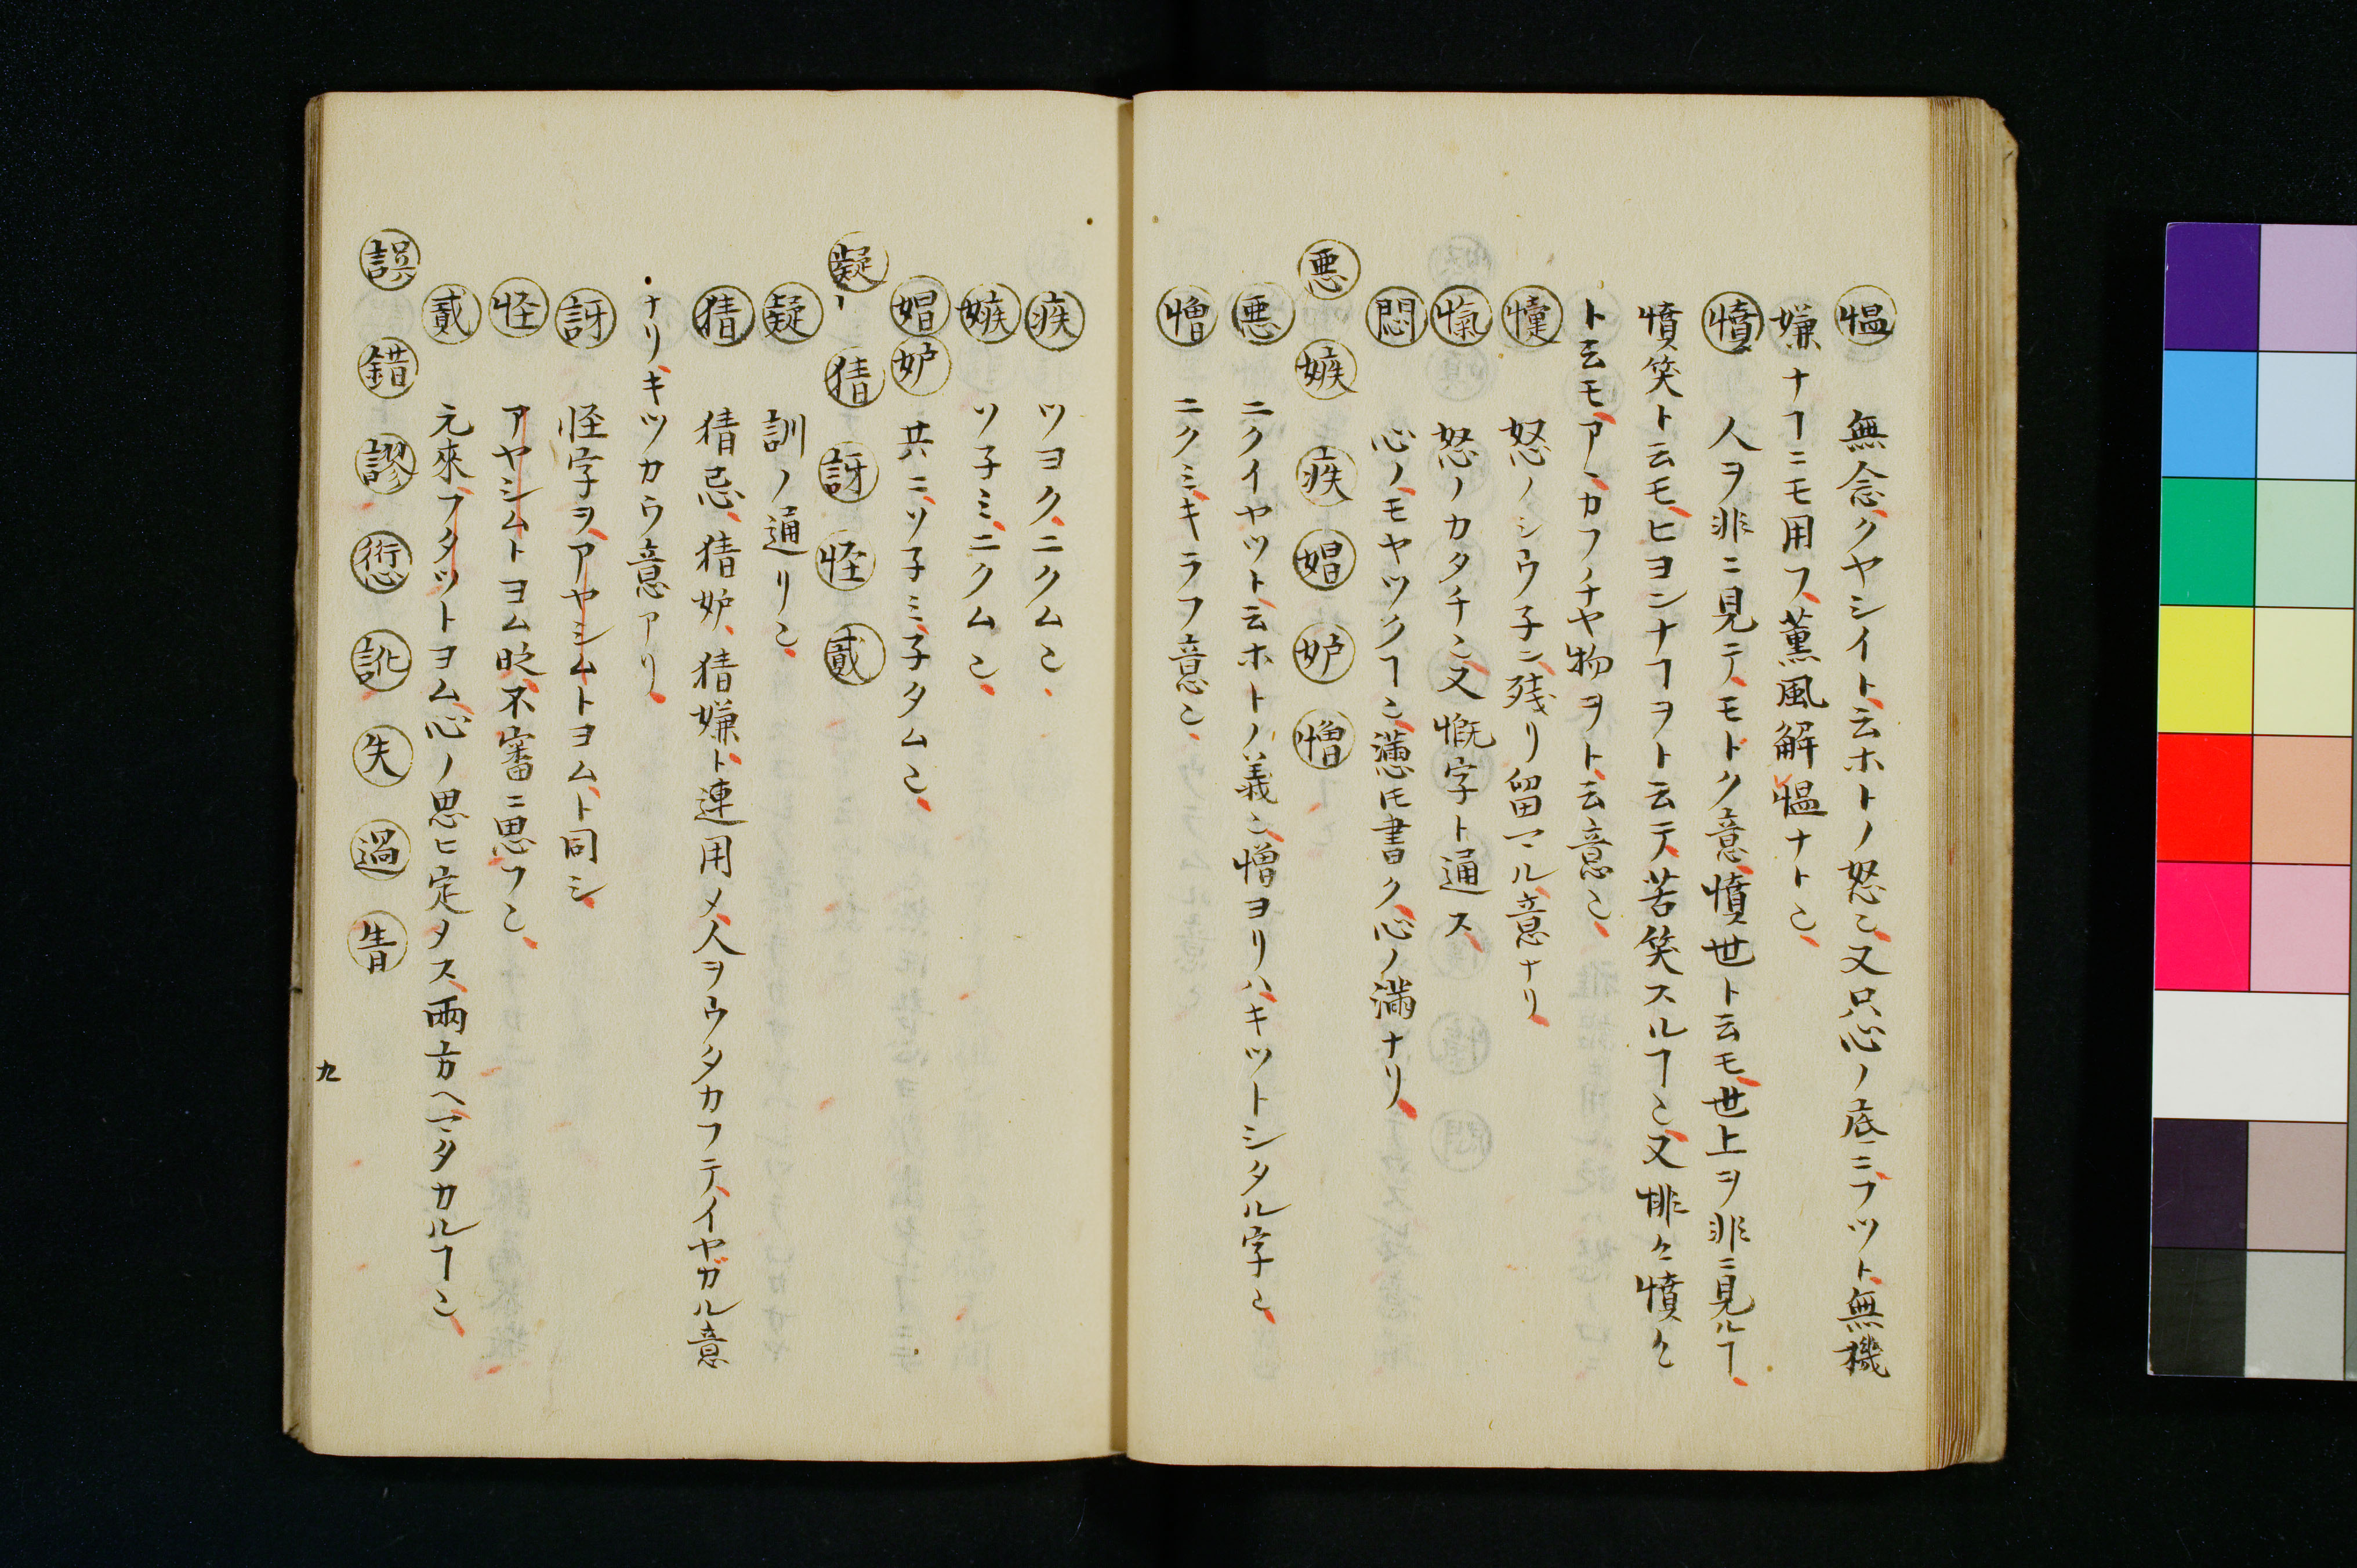 慍 無念クヤシイト云ホトノ怒也又只心ノ底ニフツト無機
嫌ナヿニモ用フ薫風解慍ナト也
憤 人ヲ非ニ見テモトク意憤世ト云モ世上ヲ非ニ見ルヿ
憤笑ト云モヒヨンナヿヲト云テ苦笑スルヿ也又悱々憤々
ト云モアヽカフチヤ物ヲト云意也
怒ノシウ子ン残リ留マル意ナリ
愾 怒ノカタチ也又慨字ト通ス
悶 心ノモヤツクヿ也懣トモ書ク心ノ満ナリ
悪 嫉 疾 媢 妒 憎
悪 ニクイヤツト云ホトノ義也憎ヨリハキツトシタル字也
憎 ニクミキラフ意也
疾 ツヨクニクム也
嫉 ソ子ミニクム也
媢 妒 共ニソ子ミ子タム也
疑 猜 訝 怪 貳
疑 訓ノ通リ也
猜 猜忌猜妒猜嫌ト連用メ人ヲウタカフテイヤガル意
ナリキツカウ意アリ
訝 怪字ヲアヤシムトヨムト同シ
怪 アヤシムトヨム時不審ニ思フ也
貳 元來フタツトヨム心ノ思ヒ定タス兩方ヘマタカルヿ也
誤 錯 謬 愆 訛 失 過 眚
九